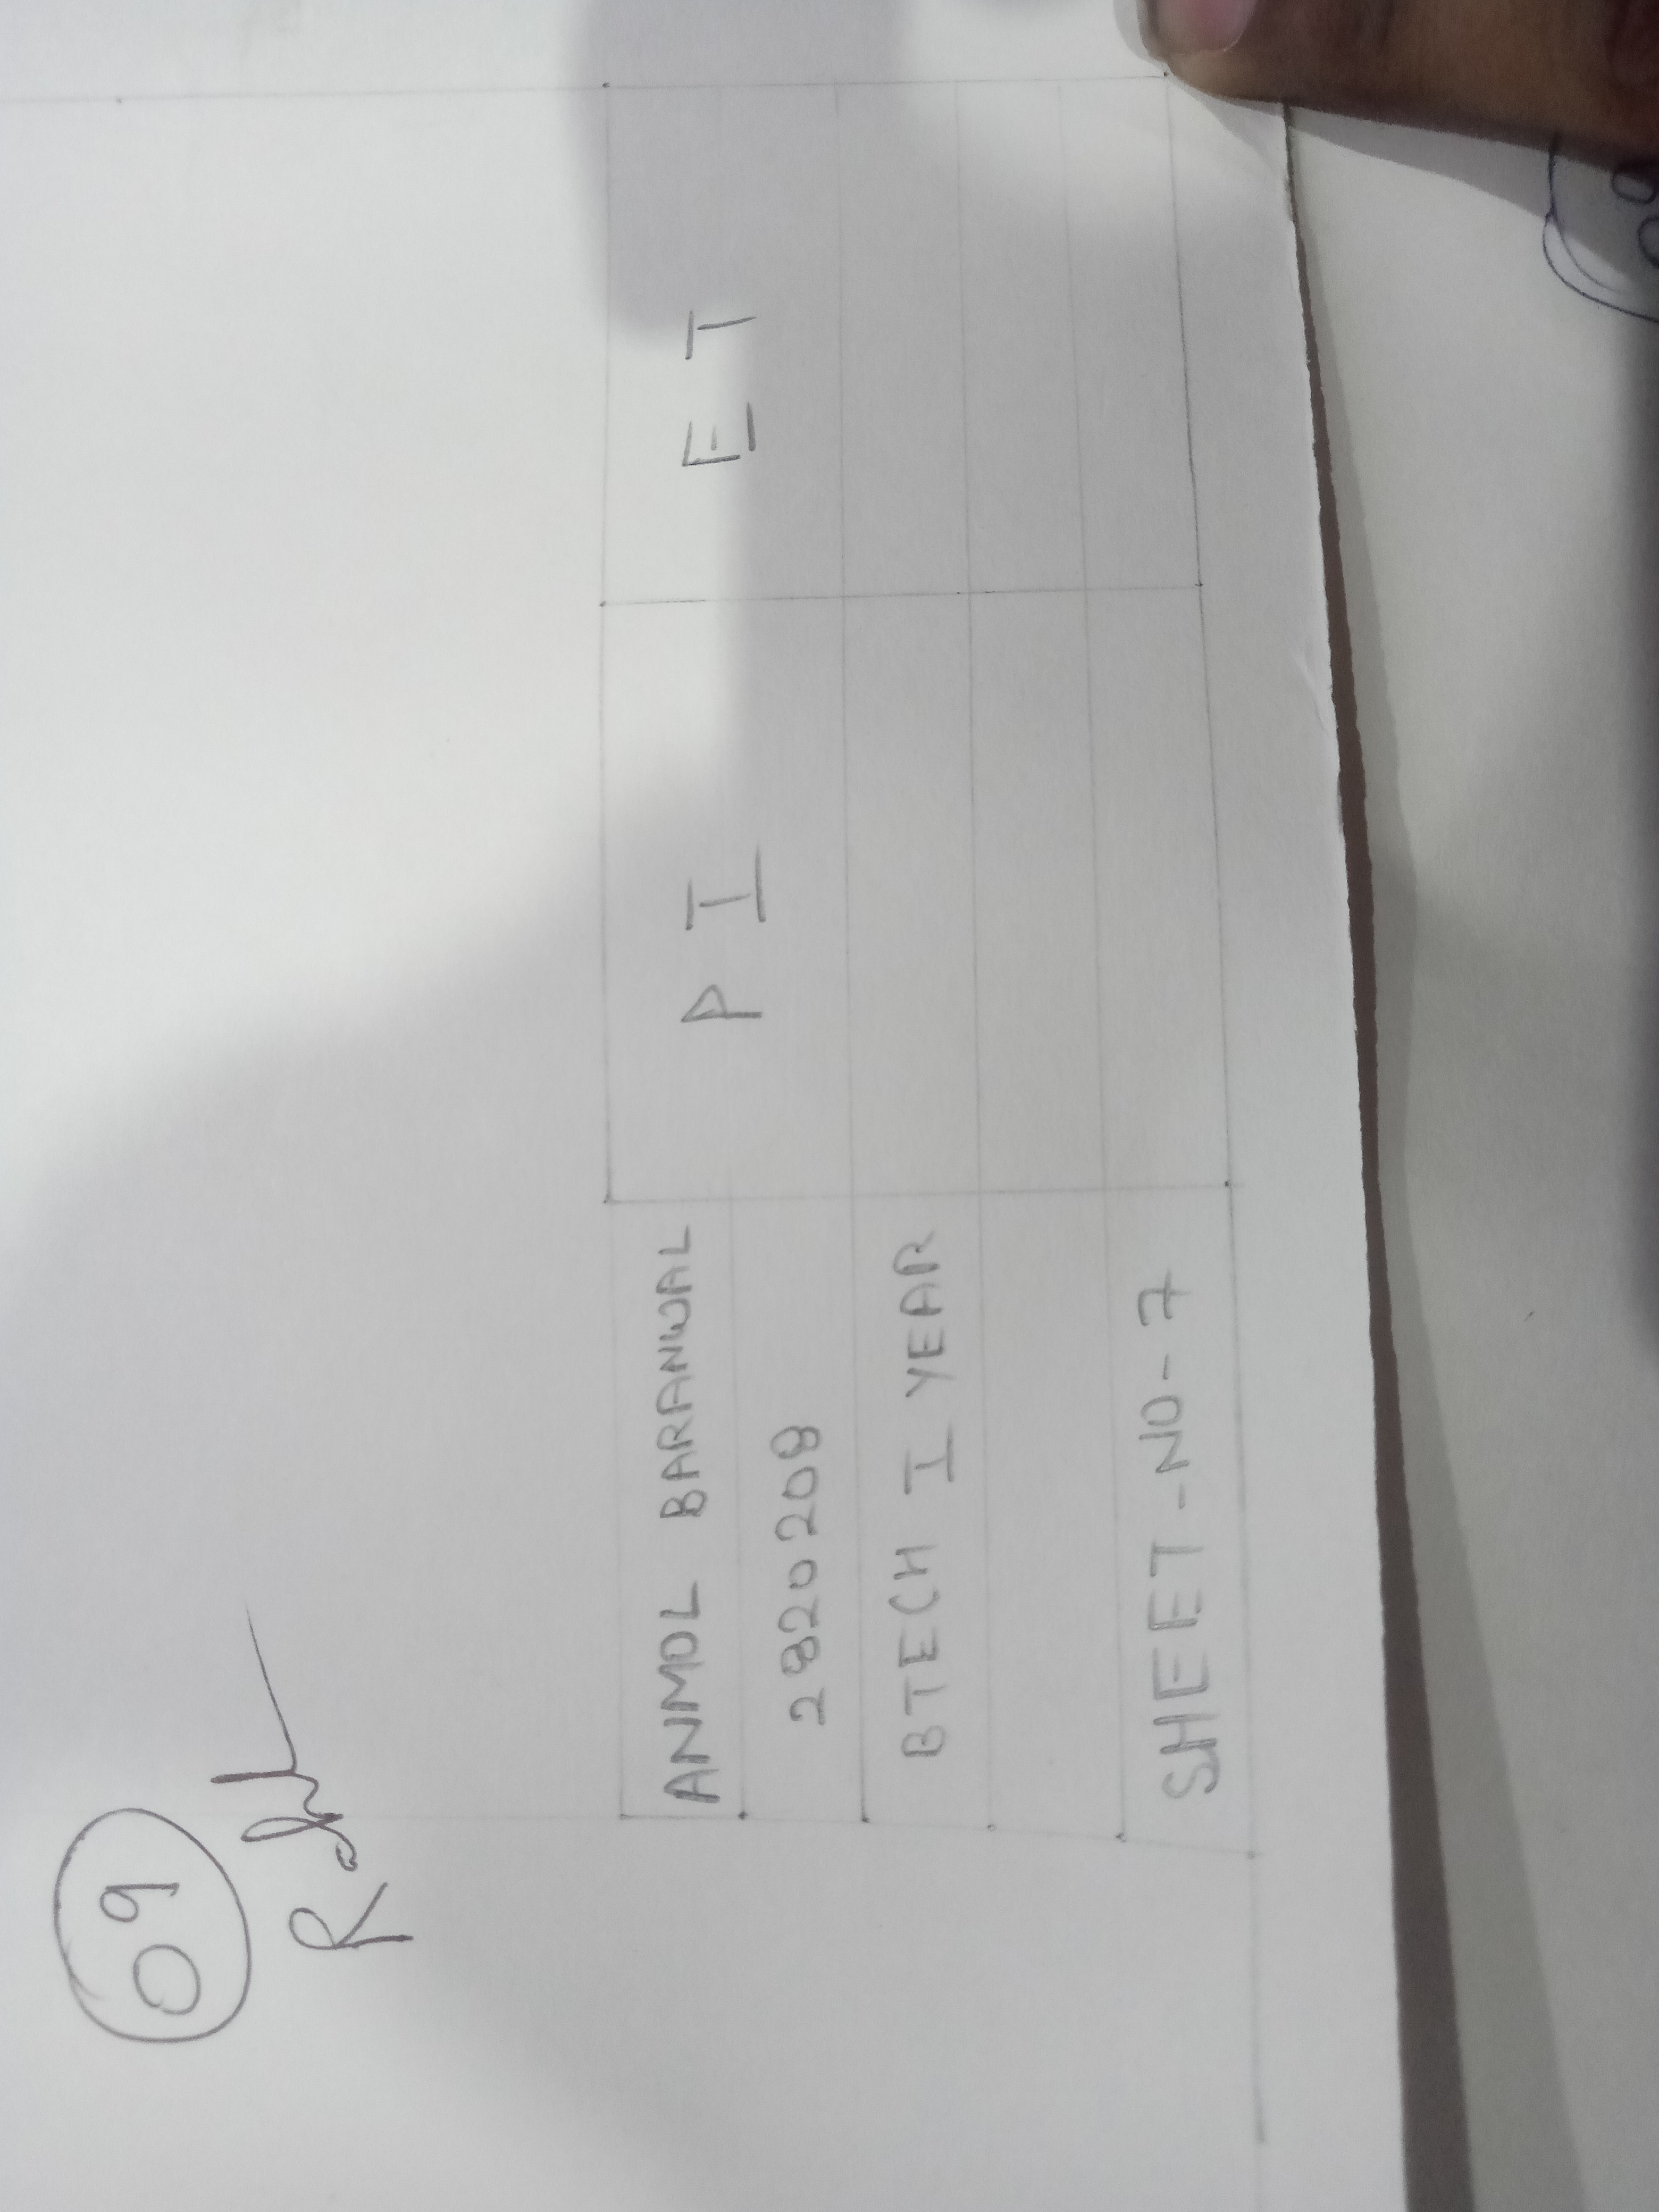 09
ANMOL BARANWAL
PIET
2820208
BTECH I YEAR
SHEET-NO-7